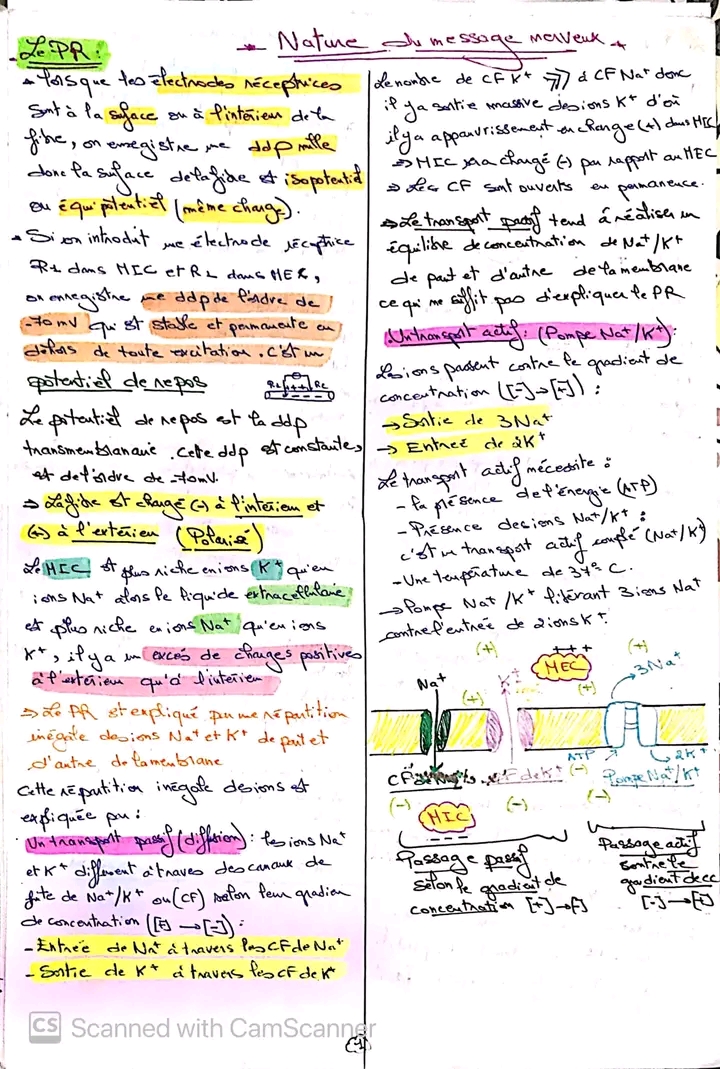 Nature du message nerveux
Le PR :
Lorsque les électrodes réceptrices
sont à la surface ou à l'intérieur de la
fibre, on enregistre une ddp nulle
donc la surface de la fibre est isopotentiel
ou équipotentiel (même charge).
Si on introduit une électrode réceptrice
R1 dans MIC et R2 dans MEC,
on enregistre une ddp de l'ordre de
-70 mV qui est stable et permanente en
dehors de toute excitation. C'est un
potentiel de repos
Le potentiel de repos est la ddp
transmembranaire. Cette ddp est constante,
est de l'ordre de -70mV.
⇒ La fibre est chargé (-) à l'intérieur et
(+) à l'extérieur (Polarisé)
Le MIC est plus riche en ions K+ qu'en
ions Na+ alors le liquide extracellulaire
est plus riche en ions Na+ qu'en ions
K+, il y a un excés de charges positives
à l'extérieur qu'à l'intérieur
⇒ Le PR est expliqué par une répartition
inégale des ions Na+ et K+ de part et
d'autre de la membrane
Cette répartition inégale des ions est
expliquée par :
Un transport passif (diffusion) : les ions Na+
et K+ diffusent à travers des canaux de
fuite de Na+/K+ ou (CF) selon leur gradien
de concentration ([+] → [-]) :
- Entrée de Na+ à travers les CF de Na+
- Sortie de K+ à travers les CF de K+
Le nombre de CF K+ >>> à CF Na+ donc
il y a sortie massive des ions K+ d'où
il y a appauvrissement en charge (+) dans MIC
⇒ MIC sera chargé (-) par rapport au MEC
⇒ Les CF sont ouverts en permanence.
⇒ Le transport passif tend à réaliser un
équilibre de concentration de Na+/K+
de part et d'autre de la membrane
ce qui ne suffit pas d'expliquer le PR
Un transport actif : (Pompe Na+/K+) :
Les ions passent contre le gradient de
concentration ([-] → [+]) :
→ Sortie de 3Na+
→ Entrée de 2K+
Le transport actif nécessite :
- la présence de l'énergie (ATP)
- Présence des ions Na+/K+ :
c'est un transport actif couplé (Na+/K+)
- Une température de 37° C.
→ Pompe Na+/K+ libérant 3 ions Na+
contre l'entrée de 2 ions K+.
(+) +++ (+)
MEC
3Na+
Na+ (+) K+ (+)
ATP 2K+
CF de Na+ CF de K+ (-) Pompe Na+/K+
(-) (-) (-)
MIC
- - -
Passage passif
selon le gradient de
concentration [+]→[-]
Passage actif
contre le
gradient de cc
[-]→[+]
CS Scanned with CamScanner
1